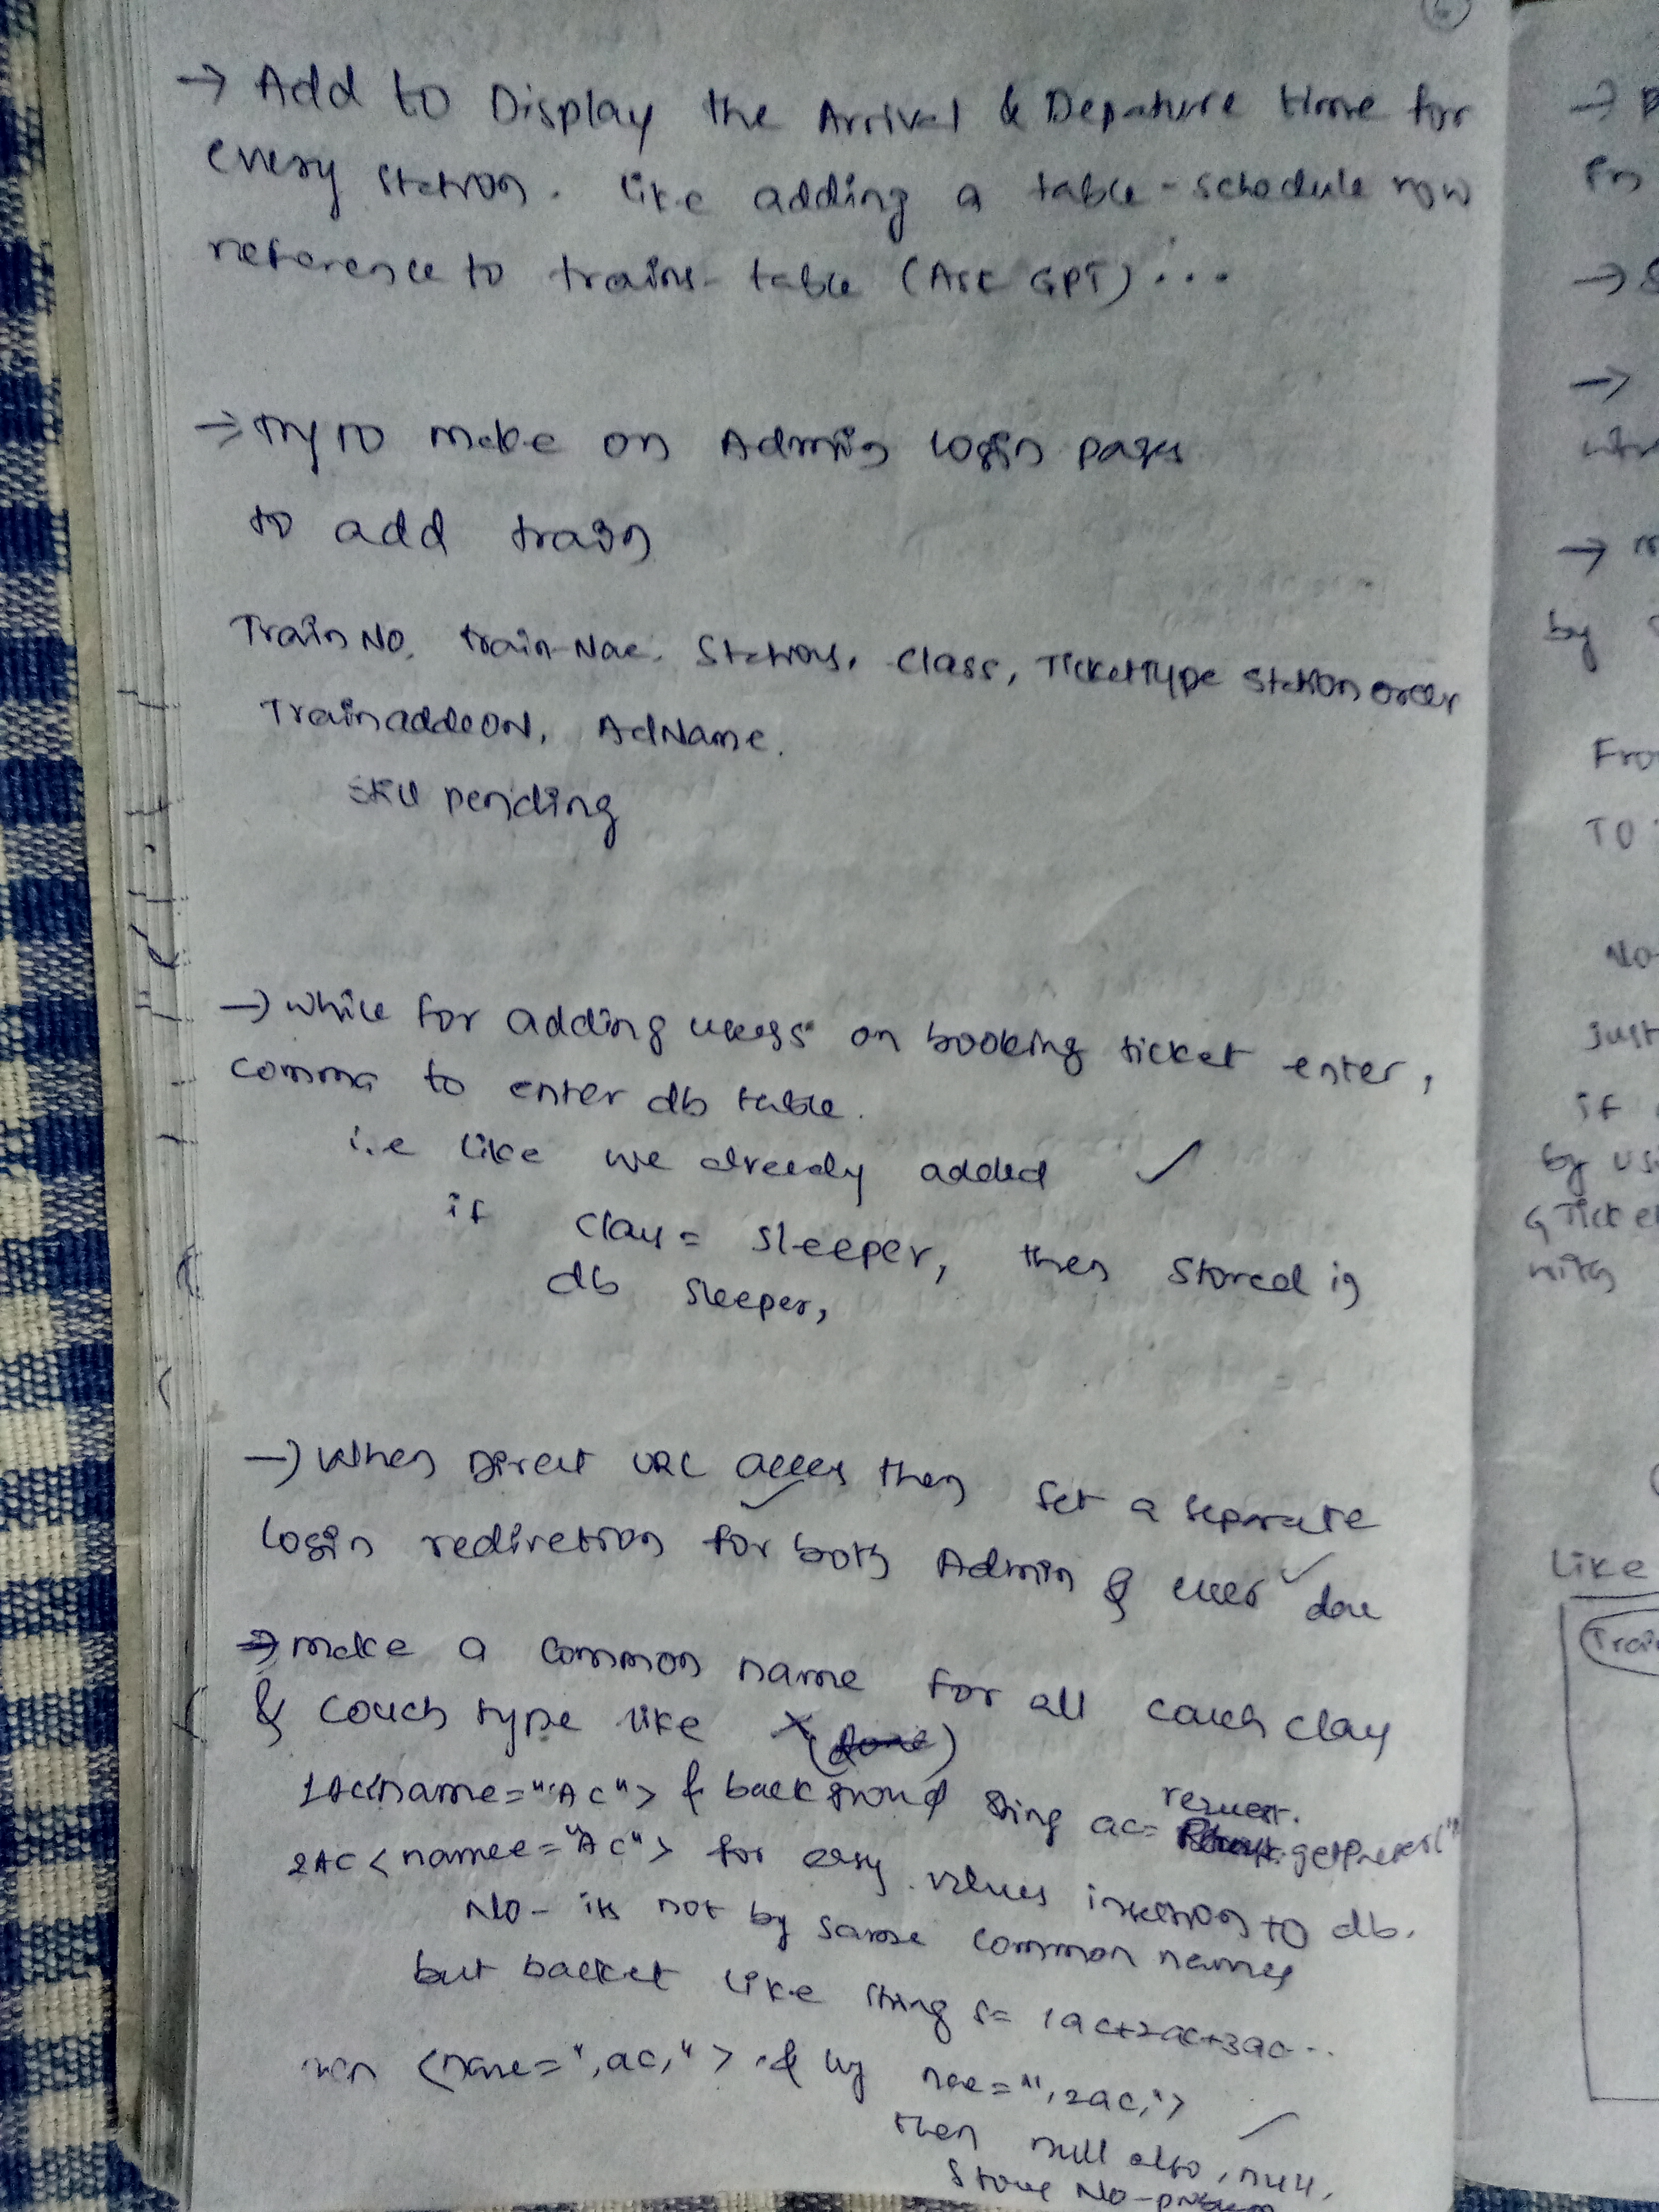 → Add to Display the Arrival & Depature time for
every station. like adding a table-schedule now
reference to trains-table (Ask GPT)...
→ Try to make on Admin login pages
to add train
Train No, train Nae, Stations, Class, TicketType Station order
TrainaddeON, AdName.
Still pending
→ while for adding users on booking ticket enter,
comma to enter db table.
i.e like we already added ✓
if class = sleeper, then stored in
db sleeper,
→ When Direct URL access then set a separate
login redirection for both Admin & user ✓ done
→ make a common name for all coach class
& couch type like X (done)
1AC<name="AC"> & background String ac= request.
2AC <namee="AC"> for easy values insertion to db.
No- its not by same common names
but like string s= 1ac+2ac+3ac...
<name=",ac,"> & by nae=",2ac,">
then null also, null,
Store No-problem
→
→ S
→
→
by
Fro
TO
No
Just
if
by usi
Ticke
with
Like
Trai